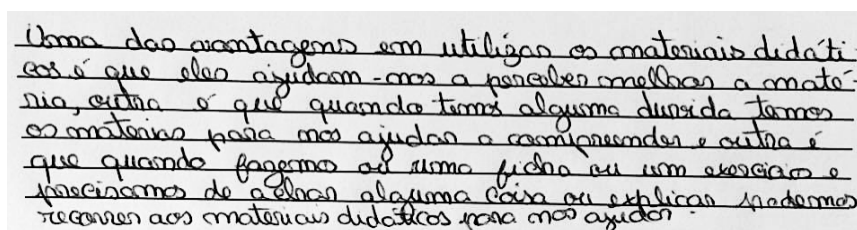 Uma das vantagens em utilizar os materiais didáti-
cos é que eles ajudam-nos a perceber melhor a maté-
ria, outra é que quando temos alguma duvida temos
os materiais para nos ajudar a compreender e outra é
que quando fazemos ou uma ficha ou um exercicio e
precisamos de achar alguma coisa ou explicar podemos
recorrer aos materiais didáticos para nos ajudar.